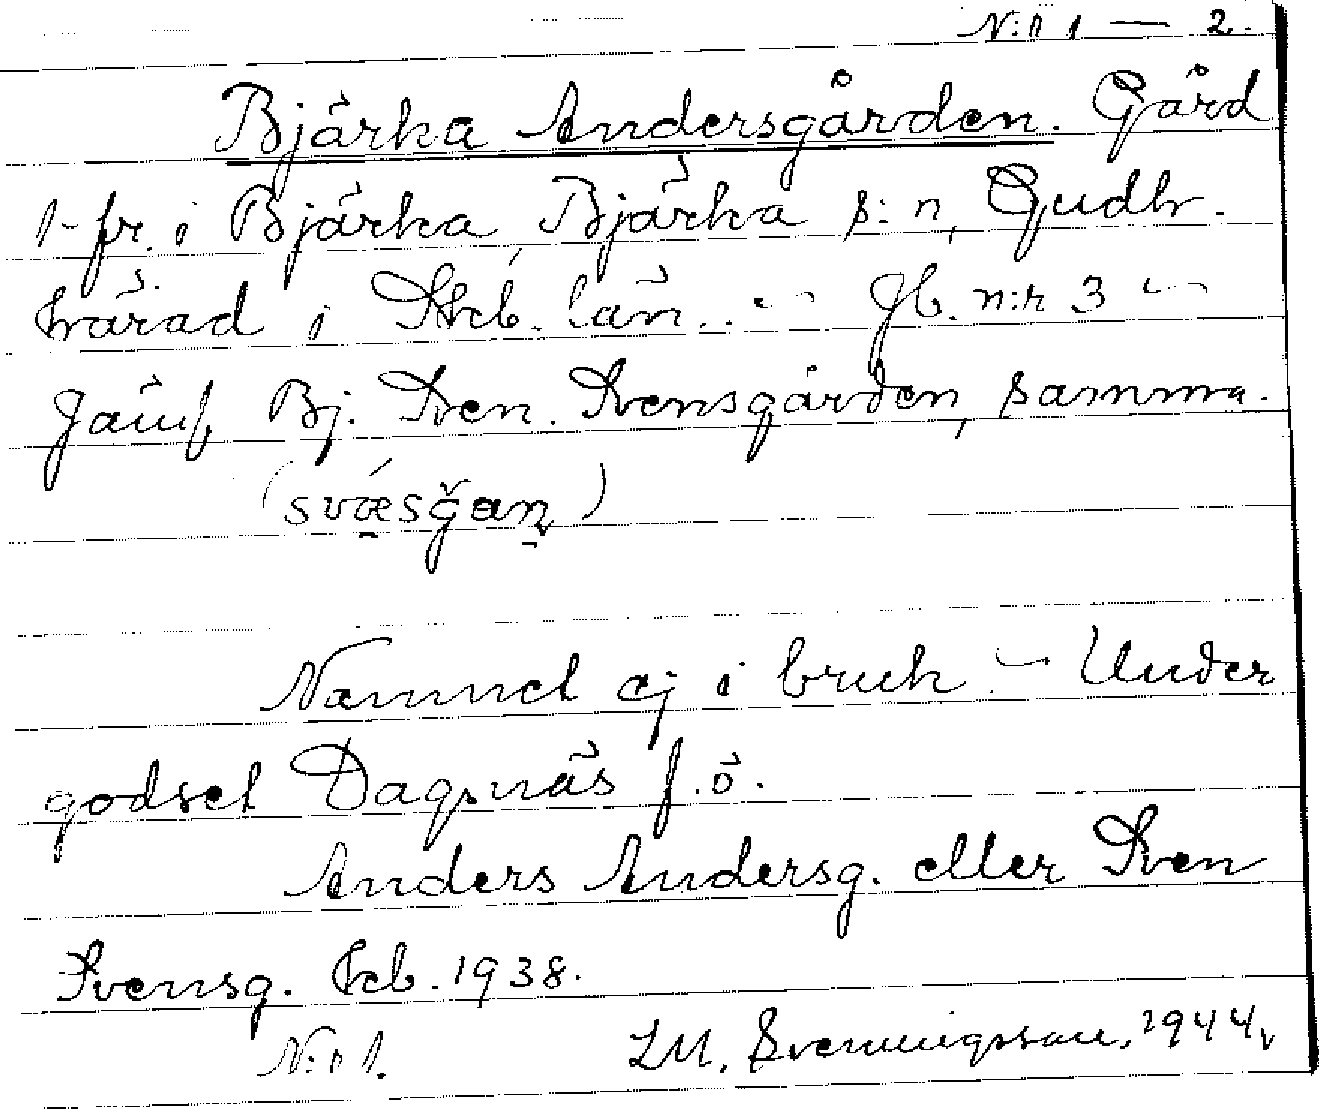 N:o 1 — 2.
Bjärka Andersgården. Gård
1-fr. i Bjärka, Bjärka s:n, Gudh.
härad i Skb. län. — Jb. n:r 3 —
Jämf. Bj. Sven. Svensgården, samma.
(svæsğan)
Namnet ej i bruk. — Under
godset Dagsnäs f.ö.
Anders Andersg. eller Sven
Svensg. Jrb. 1938.
N:o 1. LM. Svenningsson, 1944,